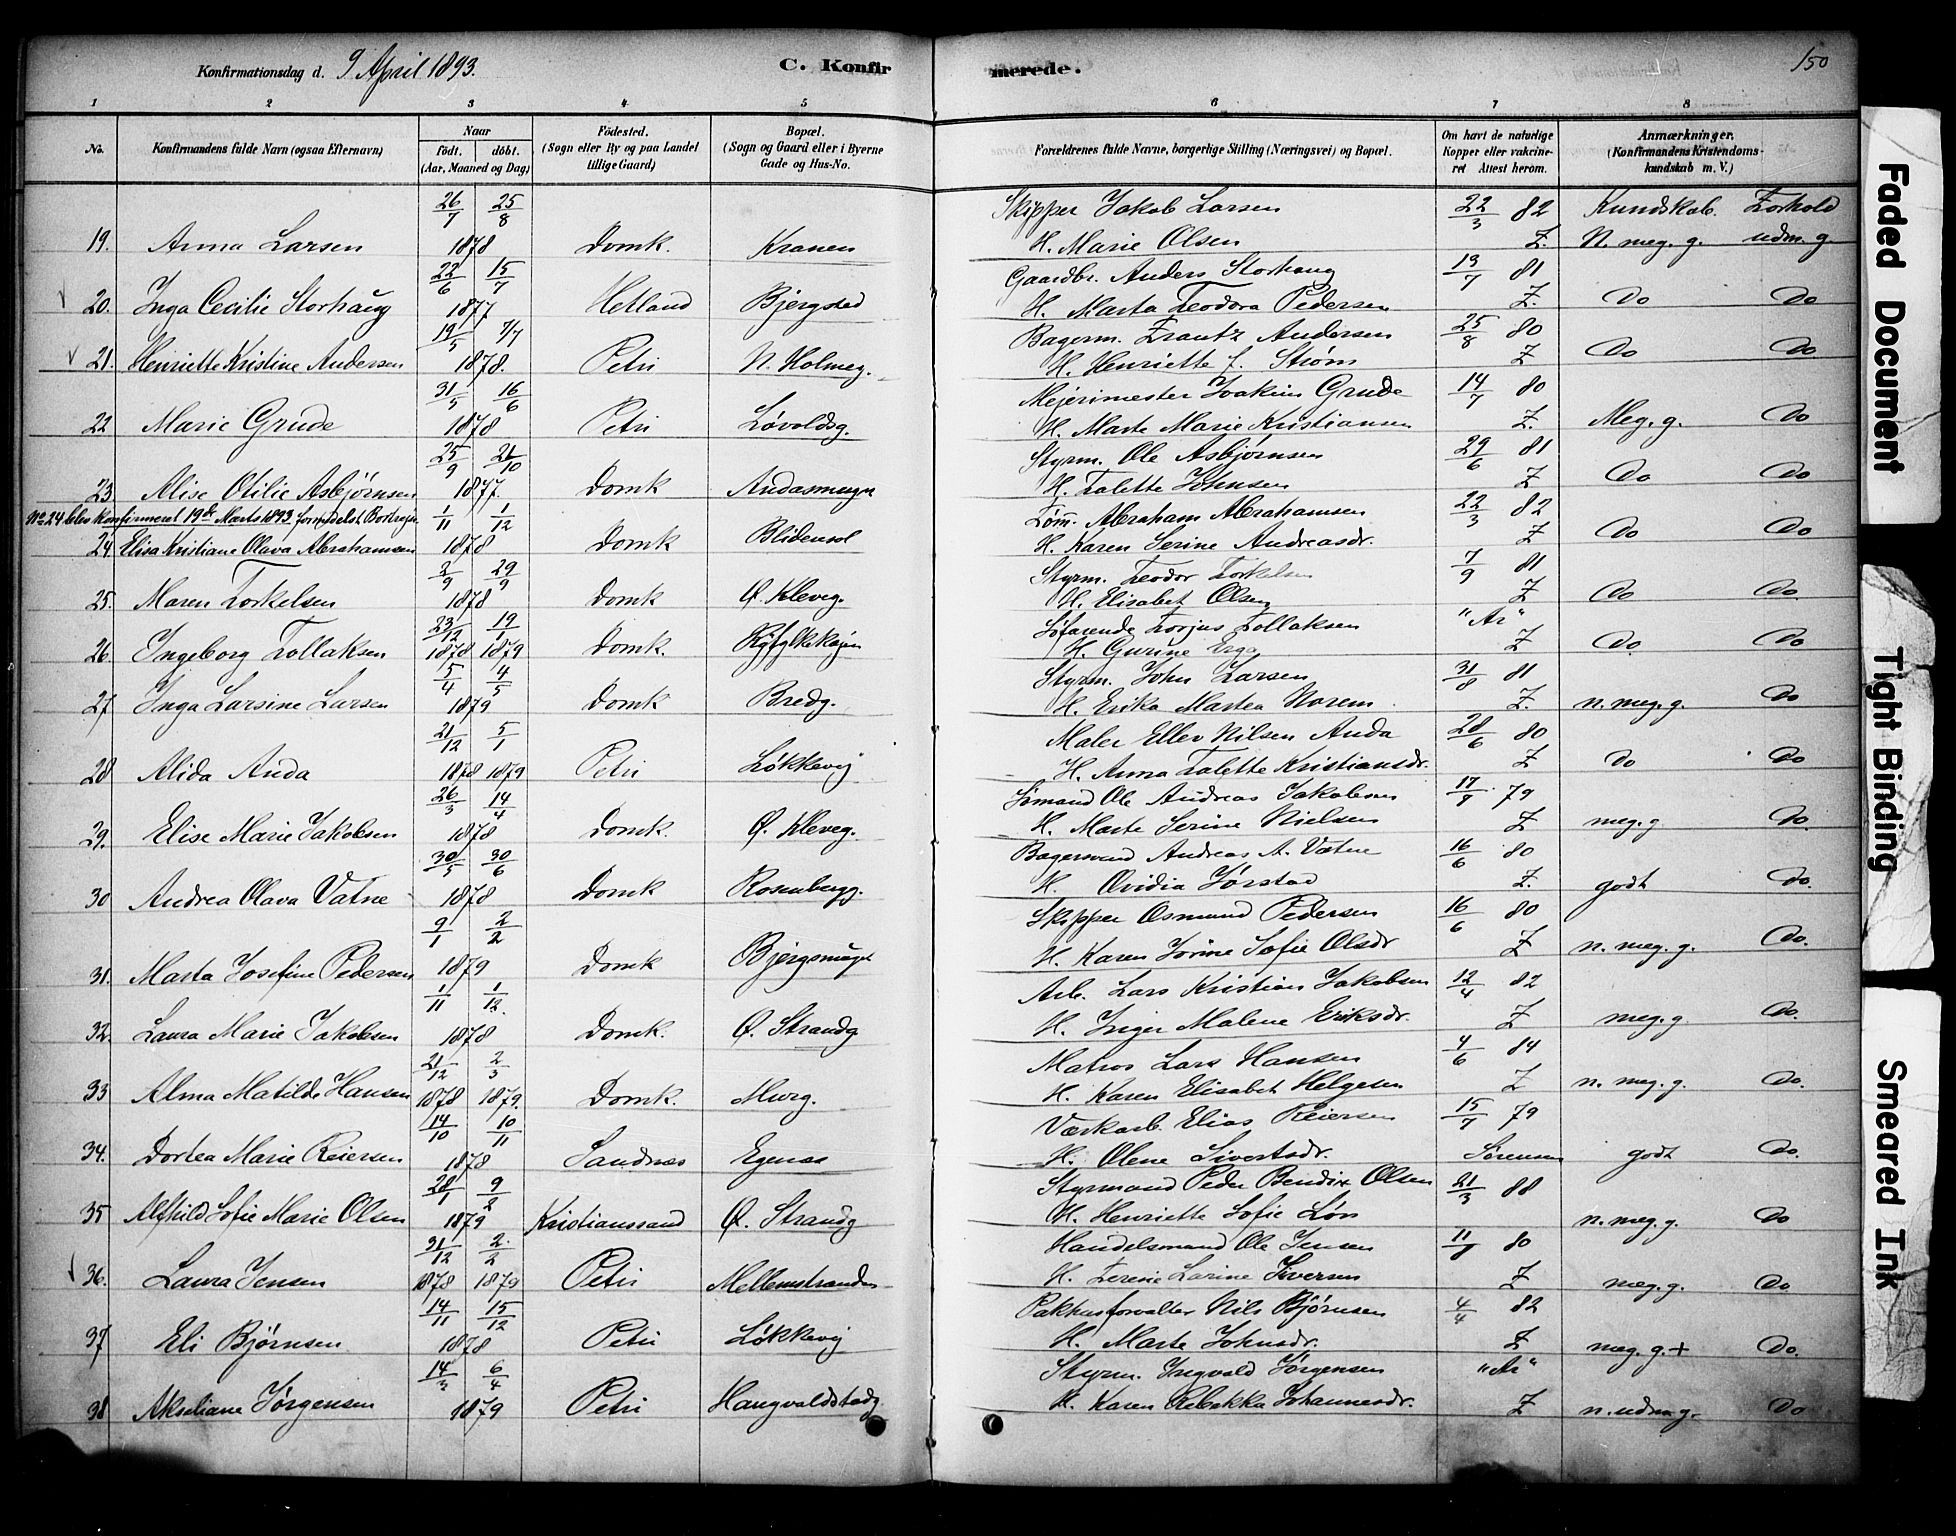 Konfirmationsdag d. 9 April 1893.
C. Konfirmerede.
150
1 2 3 4 5 6 7 8
No.
Konfirmandens fulde Navn (ogsaa Efternavn)
Naar
født. døbt.
(Aar, Maaned og Dag)
Fødested.
(Sogn eller By og paa Landet
tillige Gaard)
Bopæl.
(Sogn og Gaard eller i Byerne
Gade og Hus-No.
Forældrenes fulde Navne, borgerlige Stilling (Næringsvei) og Bopæl.
Om havt de naturlige
Kopper eller vakcine-
ret Attest herom.
Anmærkninger.
(Konfirmandens Kristendoms-
kundskab m. V.)
26/7 25/8 Skipper Jakob Larsen 22/3 82 Kundskab. Forhold
19. Anna Larsen. 1878 Domk. Kranen H. Marie Olsen Z. N. meg. g. udm. g.
22/6 15/7 Gaardbr. Anders Storhaug 13/7 81
20. Inga Cecilie Storhaug 1877 Hetland Bjergsted H. Marta Teodora Pedersen Z. Do Do
19/5 7/7 Bagerm. Frantz Andersen 25/8 80
21. Henriette Kristine Andersen 1878. Petri N. Holmeg. H. Henriette f. Strøm Z Do Do
31/5 16/6 Mejerimester Joakim Grude 14/7 80
22 Marie Grude 1878 Petri Løvoldsg. H. Marte Marie Kristiansen Z. Meg. g. Do
25/9 21/10 Styrm. Ole Asbjørnsen 29/6 81
23. Alise Otilie Asbjørnsen 1877. Domk Andasmuget H. Talette Johnsen Z Do Do
No 24 blev konfirmeret 19de Marts 1893 formedelst Bortrejse 1/11 1/12 Tøm. Abraham Abrahamsen 22/3 82
24 Elisa Kristiane Olava Abrahamsen 1878 Domk Blidensol H. Karen Serine Andreasdr. Z Do Do
2/9 29/9 Styrm. Teodor Torkelsen 7/9 81
25. Maren Torkelsen 1878 Domk Ø. Kleveg. H. Elisabet Olsen Z Do Do.
23/12 19/1 Søfarende Torjus Tollaksen "Ar"
26. Ingeborg Tollaksen 1878 1879 Domk. Ryfylkekajen H. Gurine Z Do Do
5/4 4/5 Styrm. John Larsen 31/8 81
27 Inga Larsine Larsen 1879 Domk Bredg. H. Erika Martea Norem Z. n. meg. g. Do
21/12 5/1 Maler Ellev Nilsen Auda 28/6 80
28 Alida Auda 1878 1879 Petri Løkkevej H. Anna Talette Kristiansdr. Z Do Do
26/3 14/4 Sømand Ole Andreas Jakobsen 17/9 79
29. Elise Marie Jakobsen 1878 Domk. Ø. Kleveg. H. Marte Serine Nielsen Z meg. g Do.
30/5 30/6 Bagersvend Andreas A. Vatne 16/6 80
30 Andrea Olava Vatne 1878 Domk Rosenbergg. H. Ovidia Jørstad Z. godt Do.
9/1 2/2 Skipper Osmund Pedersen 16/6 80
31. Marta Josefine Pedersen 1879 Domk Bjergsmuget H. Karen Jorine Sofie Olsdr Z n. meg. g. Do.
1/11 1/12. Arb. Lars Kristian Jakobsen 12/4 82
32. Laura Marie Jakobsen 1878 Domk. Ø. Strandg H. Inger Malene Eriksdr. Z meg. g Do.
21/12 2/3 Matros Lars Hansen 4/6 84
33 Alma Matilde Hansen 1878 1879. Domk. Murg. H. Karen Elisabet Helgesen Z n. meg. g. Do.
14/10 10/11 Værkarb. Elias Reiersen 15/7 79
34. Dortea Marie Reiersen 1878 Sandnæs Egenæs H. Olene Sivertsdr. Sørensen godt Do.
28/1 9/2 Styrmand Peder Bendix Olsen 21/3 88
35 Alfhild Sofie Marie Olsen 1879 Kristianssand Ø. Strandg H. Henriette Sofie n. meg. g. Do
31/12 2/2 Handelsmand Ole Jensen 11/9 80
36. Laura Jensen 1878 1879 Petri Mellemstranden H. Serine Larine Siversen Z meg. g. Do
14/11 15/12 Pakhusforvalter Nils Bjørnsen 4/4 82
37 Eli Bjørnsen 1878 Petri Løkkevej H. Marte Johnsdr. Z meg. g. + Do.
14/3 6/4 Styrm. Ingvald Jørgensen "Ar"
38 Akseliane Jørgensen 1879 Petri Haugvaldstadg. H. Karen Rebekka Johannesdr. Z n. udm. g. Do
Faded Document
Tight Binding
Smeared Ink